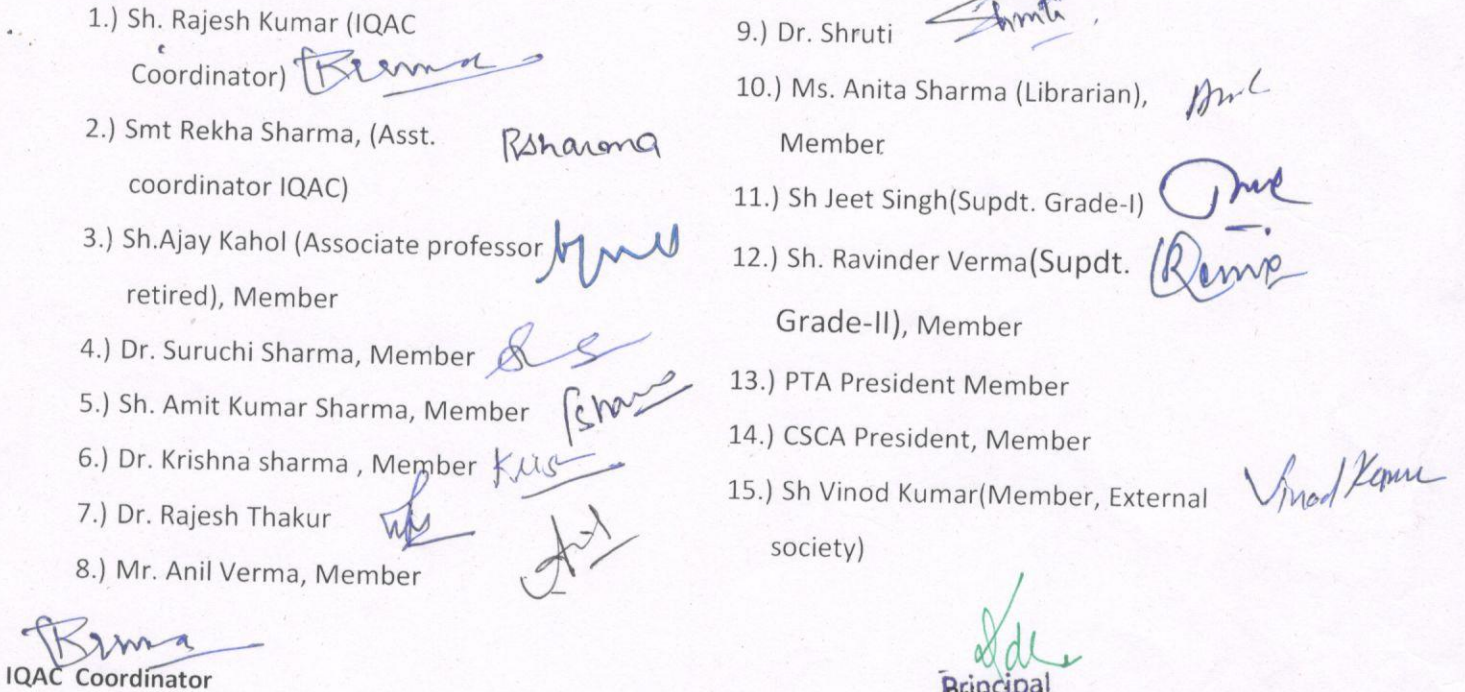 1.) Sh. Rajesh Kumar (IQAC
Coordinator)
2.) Smt Rekha Sharma, (Asst. RSharma
coordinator IQAC)
3.) Sh.Ajay Kahol (Associate professor
retired), Member
4.) Dr. Suruchi Sharma, Member
5.) Sh. Amit Kumar Sharma, Member
6.) Dr. Krishna sharma , Member
7.) Dr. Rajesh Thakur
8.) Mr. Anil Verma, Member
IQAC Coordinator
9.) Dr. Shruti Shruti
10.) Ms. Anita Sharma (Librarian),
Member
11.) Sh Jeet Singh(Supdt. Grade-I)
12.) Sh. Ravinder Verma(Supdt.
Grade-II), Member
13.) PTA President Member
14.) CSCA President, Member
15.) Sh Vinod Kumar(Member, External Vinod Kumar
society)
Principal